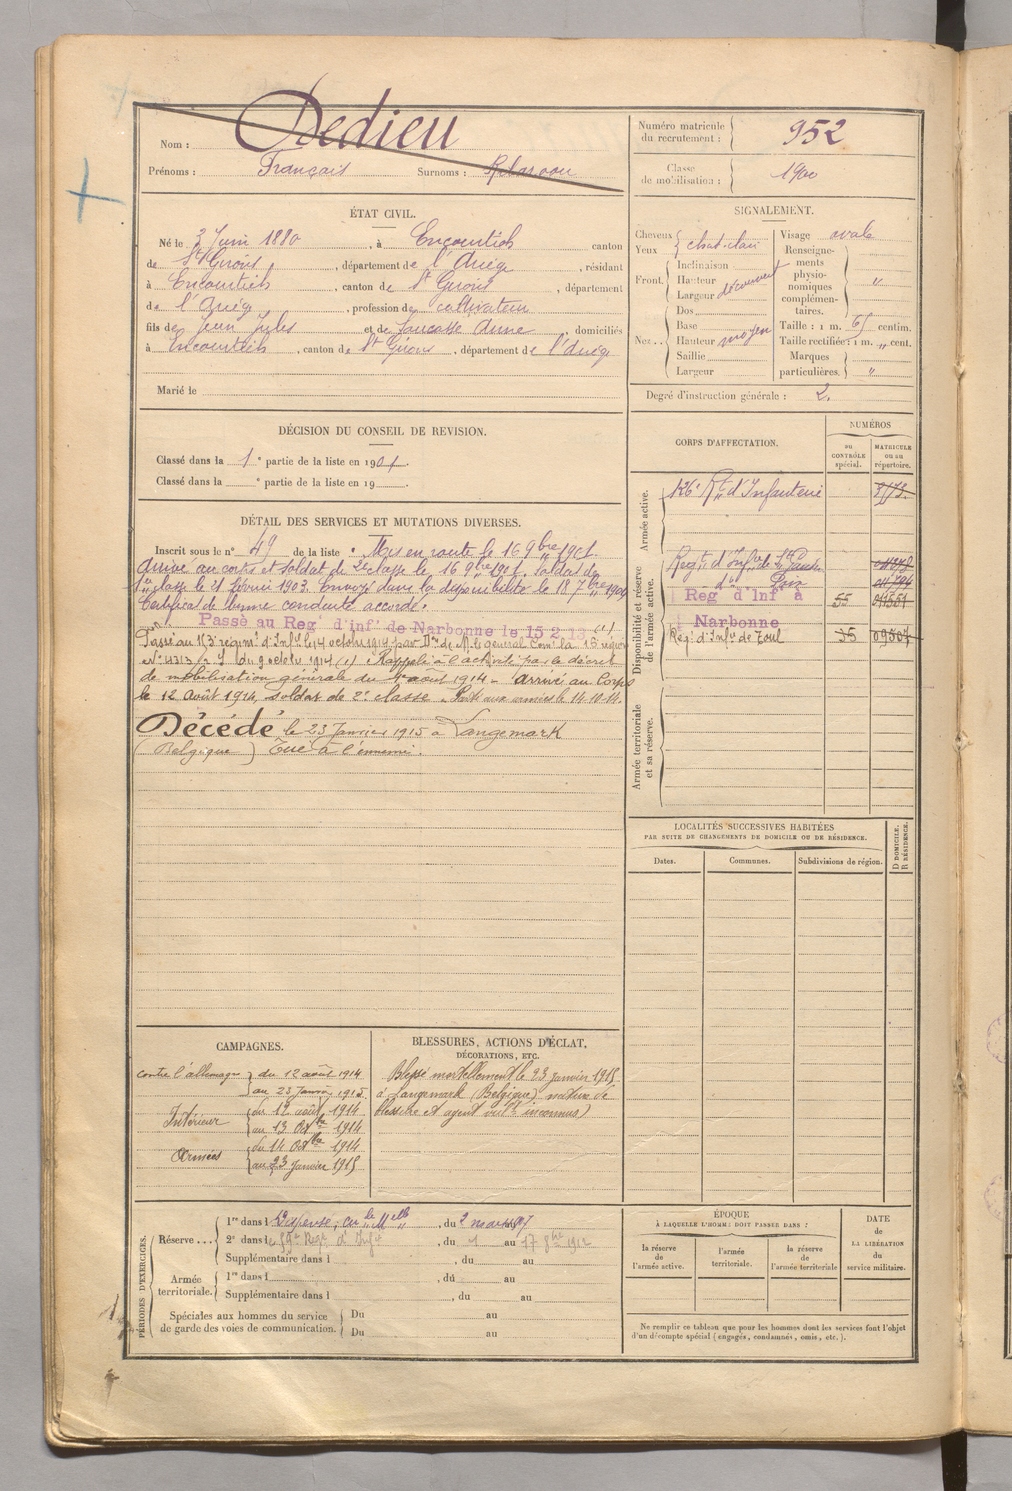 Nom : Dedieu
Prénoms : François Surnoms :
Numéro matricule du recrutement : 952
Classe de mobilisation : 1900
ÉTAT CIVIL.
Né le 3 Juin 1880, à Encourtiech canton
de St Girons, département de l'Ariège, résidant
à Encourtiech, canton de St Girons, département
de l'Arièg, profession de cultivateur
fils de Jean Jules et de Anne, domiciliés
à Encourtiech, canton de St Girons, département de l'Arièg
Marié le
SIGNALEMENT.
Cheveux
Yeux chat-clair
Front. Inclinaison
Hauteur
Largeur découvert
Nez.. Dos
Base
Hauteur moyen
Saillie
Largeur
Visage ovale
Renseignements physionomiques complémentaires. "
Taille : 1 m. 65 centim.
Taille rectifiée : 1 m. " cent.
Marques particulières. "
Degré d'instruction générale : 2.
DÉCISION DU CONSEIL DE REVISION.
Classé dans la 1e partie de la liste en 1901.
Classé dans la e partie de la liste en 19
DÉTAIL DES SERVICES ET MUTATIONS DIVERSES.
Inscrit sous le n° 49 de la liste Mis en route le 16 9bre 1901.
Arrivé au corps et soldat de 2e classe le 16 9bre 1901. Soldat de
1re classe le 21 février 1903. Envoyé dans la disponibilité le 18 7bre 1904
Certificat de bonne conduite accordé.
Passé au Reg' d'inf' de Narbonne le 15 2.13 (1)
Passé au 143e régimt d'Infie le 4 octobre 1914 par Don de M. le général Comt la 16e région
N° 4313/2 du 9 octob 1914 (1) Rappelé à l'activité par le décret
de mobilisation générale du 1er aout 1914 - arrivé au Corps
le 12 Août 1914, soldat de 2e classe. Parti aux armées le 14.10.14.
Décédé le 23 Janvier 1915 à Langemark
(Belgique) Tué à l'ennemi.
CORPS D'AFFECTATION.
NUMÉROS
au CONTRÔLE spécial.
MATRICULE ou au répertoire.
Armée active.
126e Rt d'Infanterie
Disponibilité et réserve de l'armée active.
Regt d'Infie de
d°
Reg' d'Inf' à Narbonne 55
Reg. d'Infie de Toul 35
Armée territoriale et sa réserve.
LOCALITÉS SUCCESSIVES HABITÉES
PAR SUITE DE CHANGEMENTS DE DOMICILE OU DE RÉSIDENCE.
Dates.
Communes.
Subdivisions de région.
D DOMICILE.
R RÉSIDENCE.
CAMPAGNES.
Contre l'allemagne du 12 août 1914
au 23 Janvier 1915
Intérieur du 12 août 1914
au 13 Octbre 1914
Armées du 14 Octbre 1914
au 23 janvier 1915
BLESSURES, ACTIONS D'ÉCLAT,
DÉCORATIONS, ETC.
Blessé mortellement le 23 janvier 1915
à Langemark (Belgique) nature de
blessure et agent inconnus)
PÉRIODES D'EXERCICES.
Réserve...
1re dans l , du 2 mars 1907
2e dans l , du 1 au 17 1912
Supplémentaire dans l , du au
Armée territoriale.
1re dans l , du au
Supplémentaire dans l , du au
Spéciales aux hommes du service de garde des voies de communication.
Du au
Du au
ÉPOQUE
À LAQUELLE L'HOMME DOIT PASSER DANS :
la réserve de l'armée active.
l'armée territoriale.
la réserve de l'armée territoriale
DATE de LA LIBÉRATION du service militaire.
Ne remplir ce tableau que pour les hommes dont les services font l'objet
d'un décompte spécial (engagés, condamnés, omis, etc.).